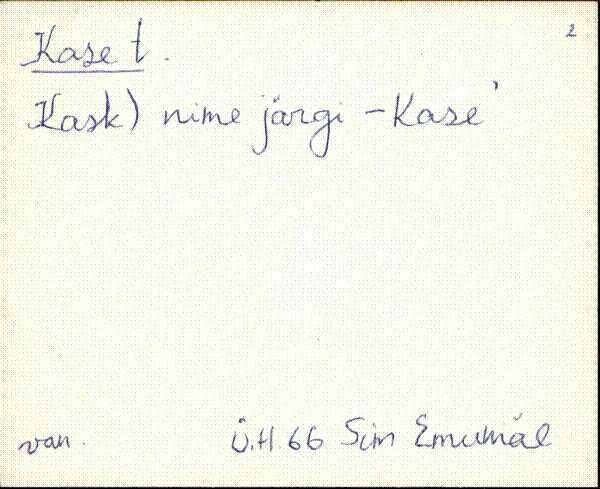 2
Kase t.
Kask) nime järgi - Kase'
van. Ü.H. 66 Sim Emumäe